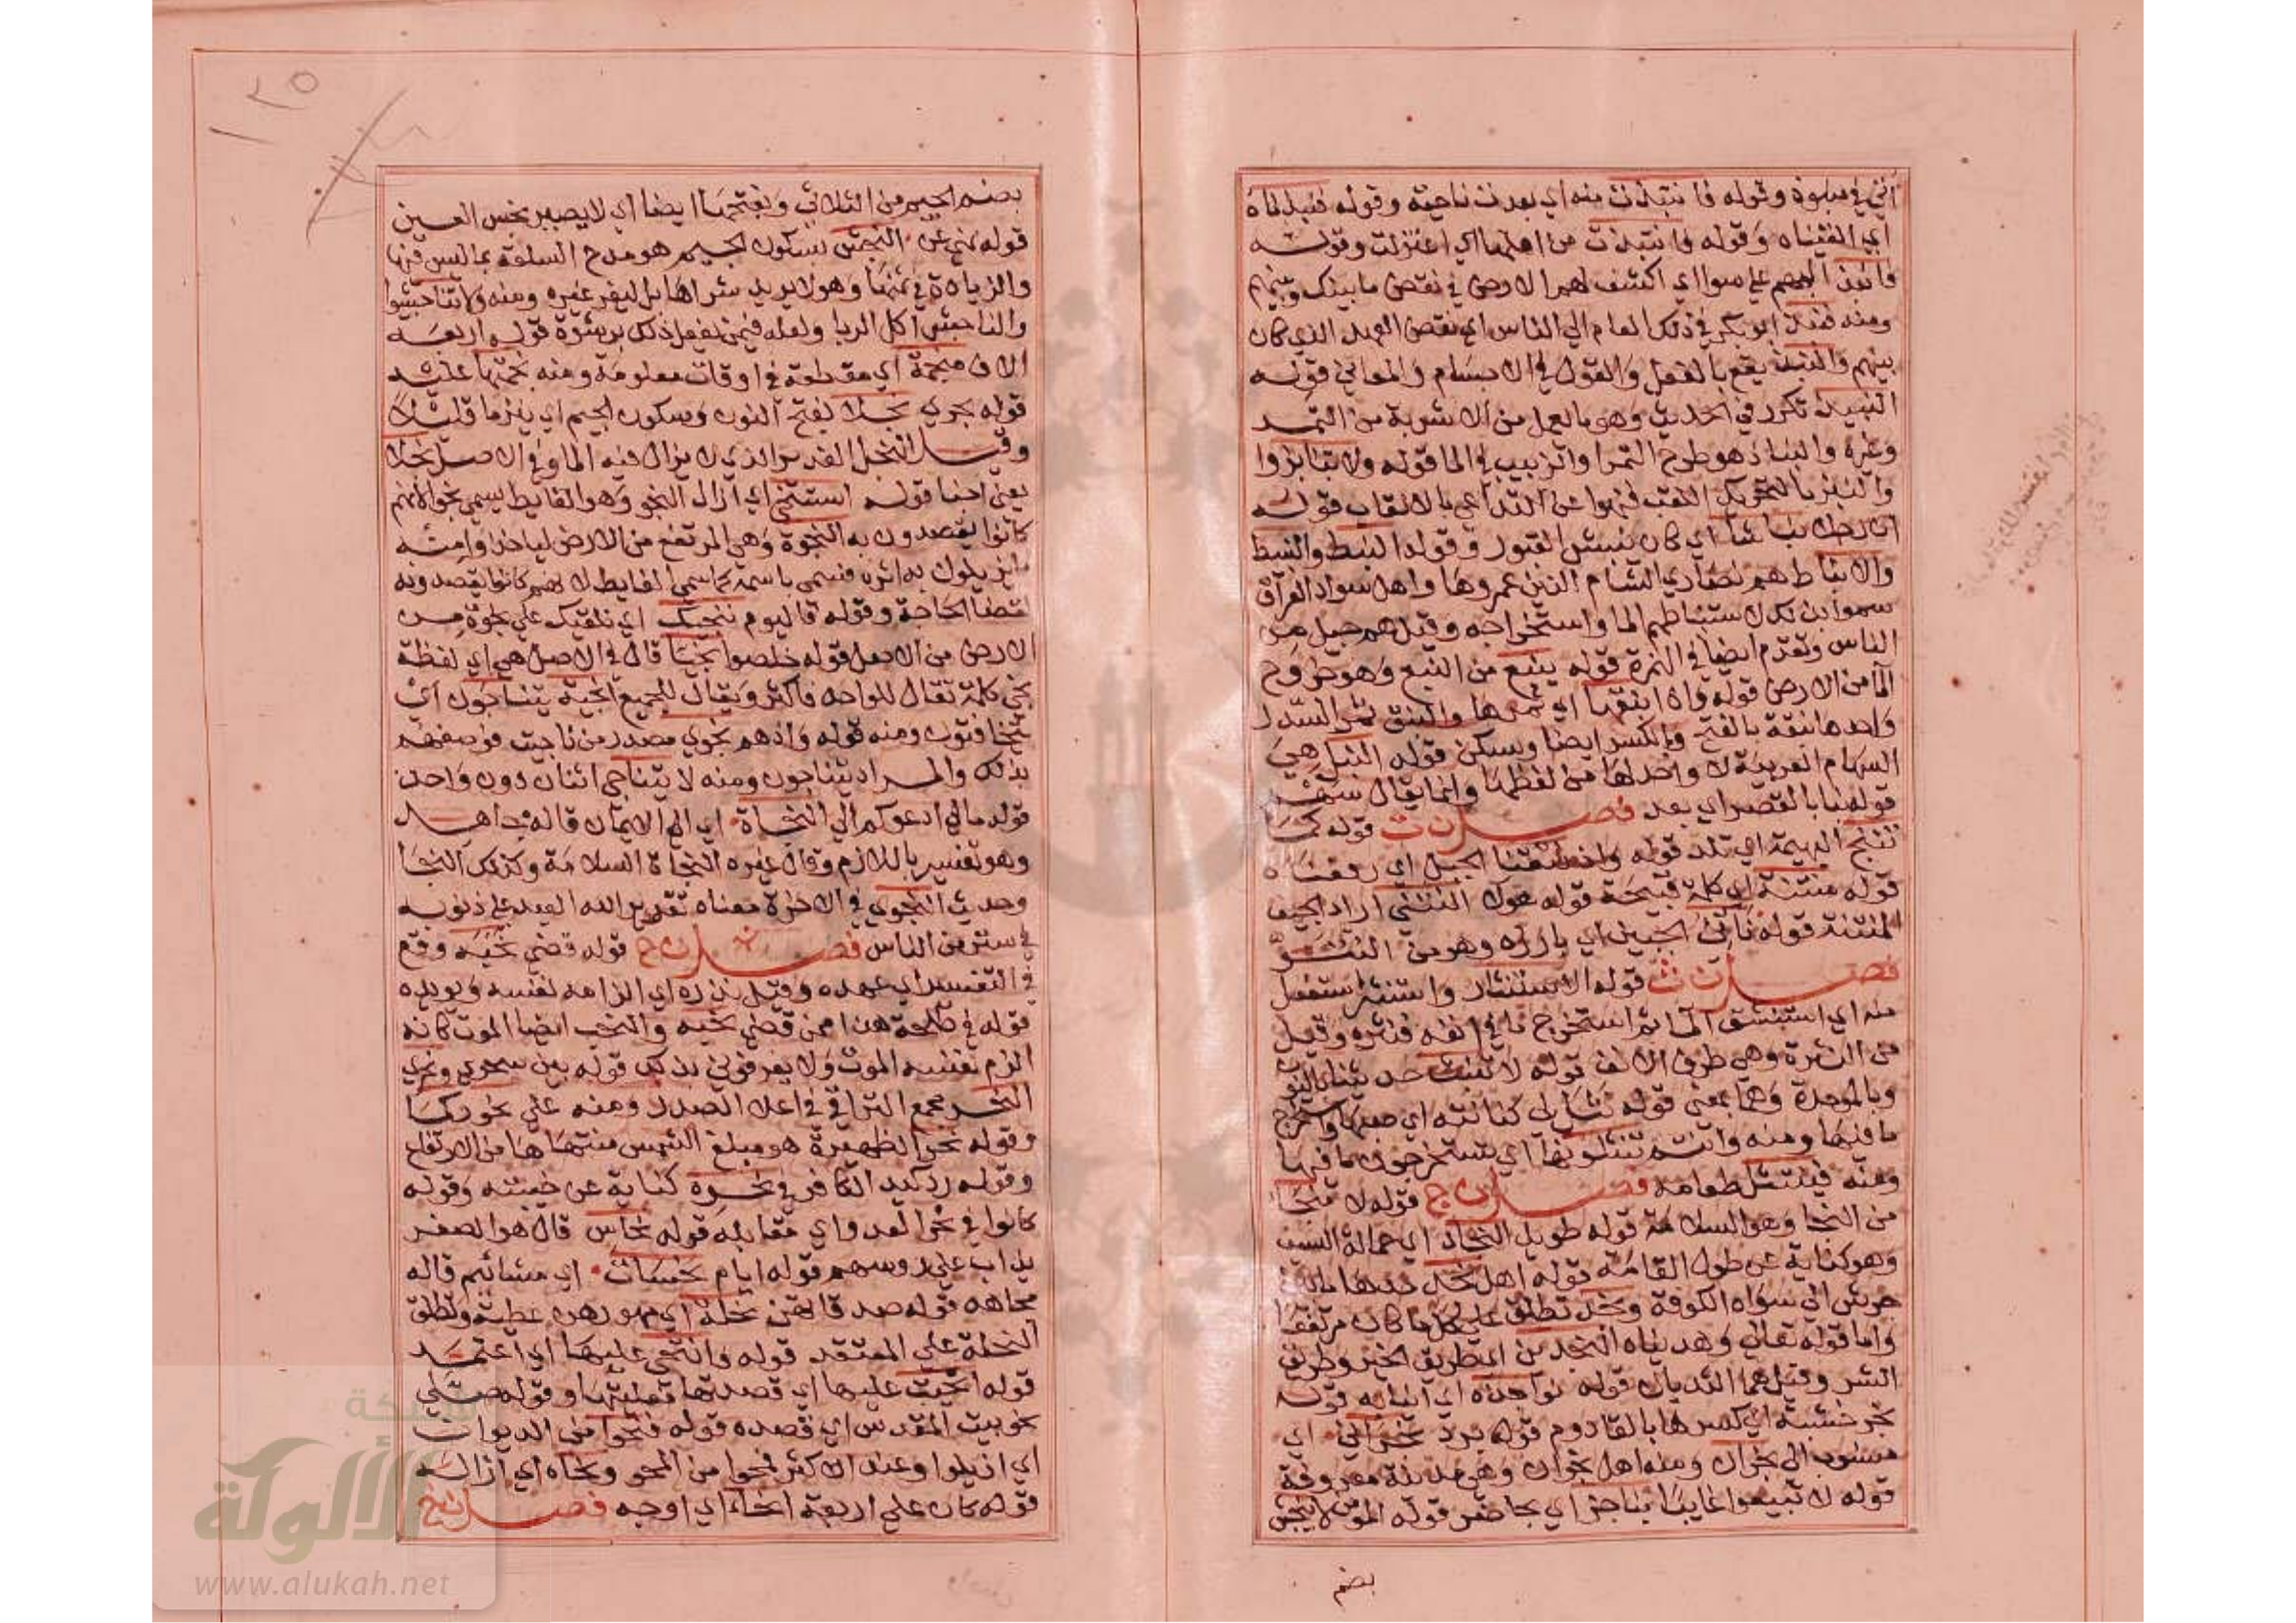 أنتى في سبوة وقوله فانتبذت منه اي بعدت ناحية وقوله فنبذناه
اي القيناه وقوله فانتبذت من اهلها اي اعتزلت وقوله
فانبذ اليهم على سوا اي اكشف لهم الامر في نقض ما بينك وبينهم
ومنه فنبذ ابو بكر في ذلك العام الى الناس اي نقض العهد الذي كان
بينهم والنبذ يقع بالفعل والقول في الاجسام والمعاني قوله
النبيذ تكرر في الحديث وهو ما يعمل من الاشربة من التمر
وغيره والنباذ هو طرح التمر او الزبيب في الما قوله ولا تنابزوا
والنبز بالتحريك اللقب فنهوا عن التداعي بالالقاب قوله
ان رجلا نباشا اي كان ينبش القبور وقوله النبط والنبيط
والانباط هم نصاري الشام الذين عمروها واهل سواد العراق
سموا بذلك لاستنباطهم الما واستخراجه وقيل هم جيل من
الناس وتقدم ايضا في النمرة قوله ينبع من النبع وهو خروج
الما من الارض قوله واذا نبقها اي ثمرها والنبق ثمر السدر
واحدها نبقة بالفتح وبالكسر ايضا ويسكن قوله النبل هي
السهام العربية لا واحد لها من لفظها وانما يقال سهم
قوله نبا بالقصر اي بعد فصل ن ت قوله كما
تنتج البهيمة اي تلد قوله واذ نتقنا الجبل اي رفعناه
قوله منتنة اي كلمة قبيحة قوله هولا النتنى اراد الجيف
المنتنة قوله ناتئ الجبين اي بارزه وهو من النتو
فصل ن ث قوله الاستنثار واستنثر استفعل
منه اي استنشق الما ثم استخرج ما في انفه فنثره وقيل
من النثرة وهي طرف الانف قوله لا تنثث حديثنا بالنون
وبالموحدة وهما بمعنى قوله نثل لي كنانته اي صبها واستخرج
ما فيها ومنه وانتم تنتثلونها اي تستخرجون ما فيها
ومنه فينتثل طعامه فصل ن ج قوله لا منجا
من النجا وهو السلامة قوله طويل النجاد اي حمالة السيف
وهو كناية عن طول القامة قوله اهل نجد حدها ما بين
جرش الى سواد الكوفة ونجد تطلق على كل ما كان مرتفعا
واما قوله تعالى وهديناه النجدين اي طريق الخير وطريق
الشر وقيل هما الثديان قوله نواجذه اي انيابه قوله
نجر خشبة اي كسرها بالقادوم قوله برد نجراني اي
منسوب الى نجران ومنه اهل نجران وهي مدينة معروفة
قوله لا تبيعوا غايبا بناجز اي بحاضر قوله المومن لا ينجس
بضم
بضم الجيم من الثلاثي وبفتحها ايضا اي لا يصير نجس العين
قوله نهى عن النجش بسكون الجيم هو مدح السلعة بما ليس فيها
والزيادة في ثمنها وهو لا يريد شراها بل ليغر غيره ومنه ولا تناجشوا
والناجش آكل الربا ولعله فيمن يفعل ذلك برشوة قوله اربعة
الاف منجمة اي مقطعة في اوقات معلومة ومنه نجمتها عليه
قوله يجري نجلا بفتح النون وسكون الجيم اي ينز ما قليلا
وقيل النجل الغدير الذي لا يزال فيه الما وفي الاصل نجلا
يعني اجنا قوله استنجى اي ازال النجو وهو الغايط يسمى نجوا لانهم
كانوا يقصدون به النجوة وهي المرتفع من الارض لياخذوا منه
ما يزيلون به اثره فسمى باسمه كما سمى الغايط لانهم كانوا يقصدونه
لقضا الحاجة وقوله فاليوم ننجيك اي نلقيك على نجوة من
الارض من الاصل قوله خلصوا نجيا قال في الاصل هي اي لفظة
نجي كلمة تقال للواحد فاكثر ويقال للجميع انجية يتناجون اي
يتخافتون ومنه قوله واذ هم نجوى مصدر من ناجيت فوصفهم
بذلك والمراد يتناجون ومنه لا يتناجى اثنان دون واحد
قوله ما لي ادعوكم الى النجاة اي الى الايمان قاله مجاهد
وهو تفسير باللازم وقال غيره النجاة السلامة وكذلك النجا
وحديث النجوى في الاخرة معناه تقرير الله العبد على ذنوبه
في ستر من الناس فصل ن ح قوله قضى نحبه وقع
في التفسير اي عهده وقيل نذره اي الزامه نفسه ويويده
قوله في طلحة هذا ممن قضى نحبه والنحب ايضا الموت كانه
الزم نفسه الموت ولا يعرفوني بذلك قوله بين سحري ونحري
النحر مجمع التراقي في اعلا الصدر ومنه على نحورنا
وقوله نحر الظهيرة هو مبلغ الشمس منتهاها من الارتفاع
وقوله رد كيد الكافر في نحره كناية عن خيبته وقوله
كانوا في نحر العدو اي مقابله قوله نحاس قال هو الصفر
يذاب على روسهم قوله ايام نحسات اي مشائيم قاله
مجاهد قوله صدقاتهن نحلة اي مهورهن عطية وتطلق
النحلة على المعتقد قوله وانتحى عليها اي اعتمد
قوله انحيت عليها اي قصدتها قصدتها وقوله صلى
نحو بيت المقدس اي قصده قوله فنحوا من الديوان
اي ازيلوا وعند الاكثر فمحوا من المحو ونحاه اي ازاله
قوله كان على اربعة انحاء اي اوجه فصل ن خ
شبكة
الألوكة
www.alukah.net